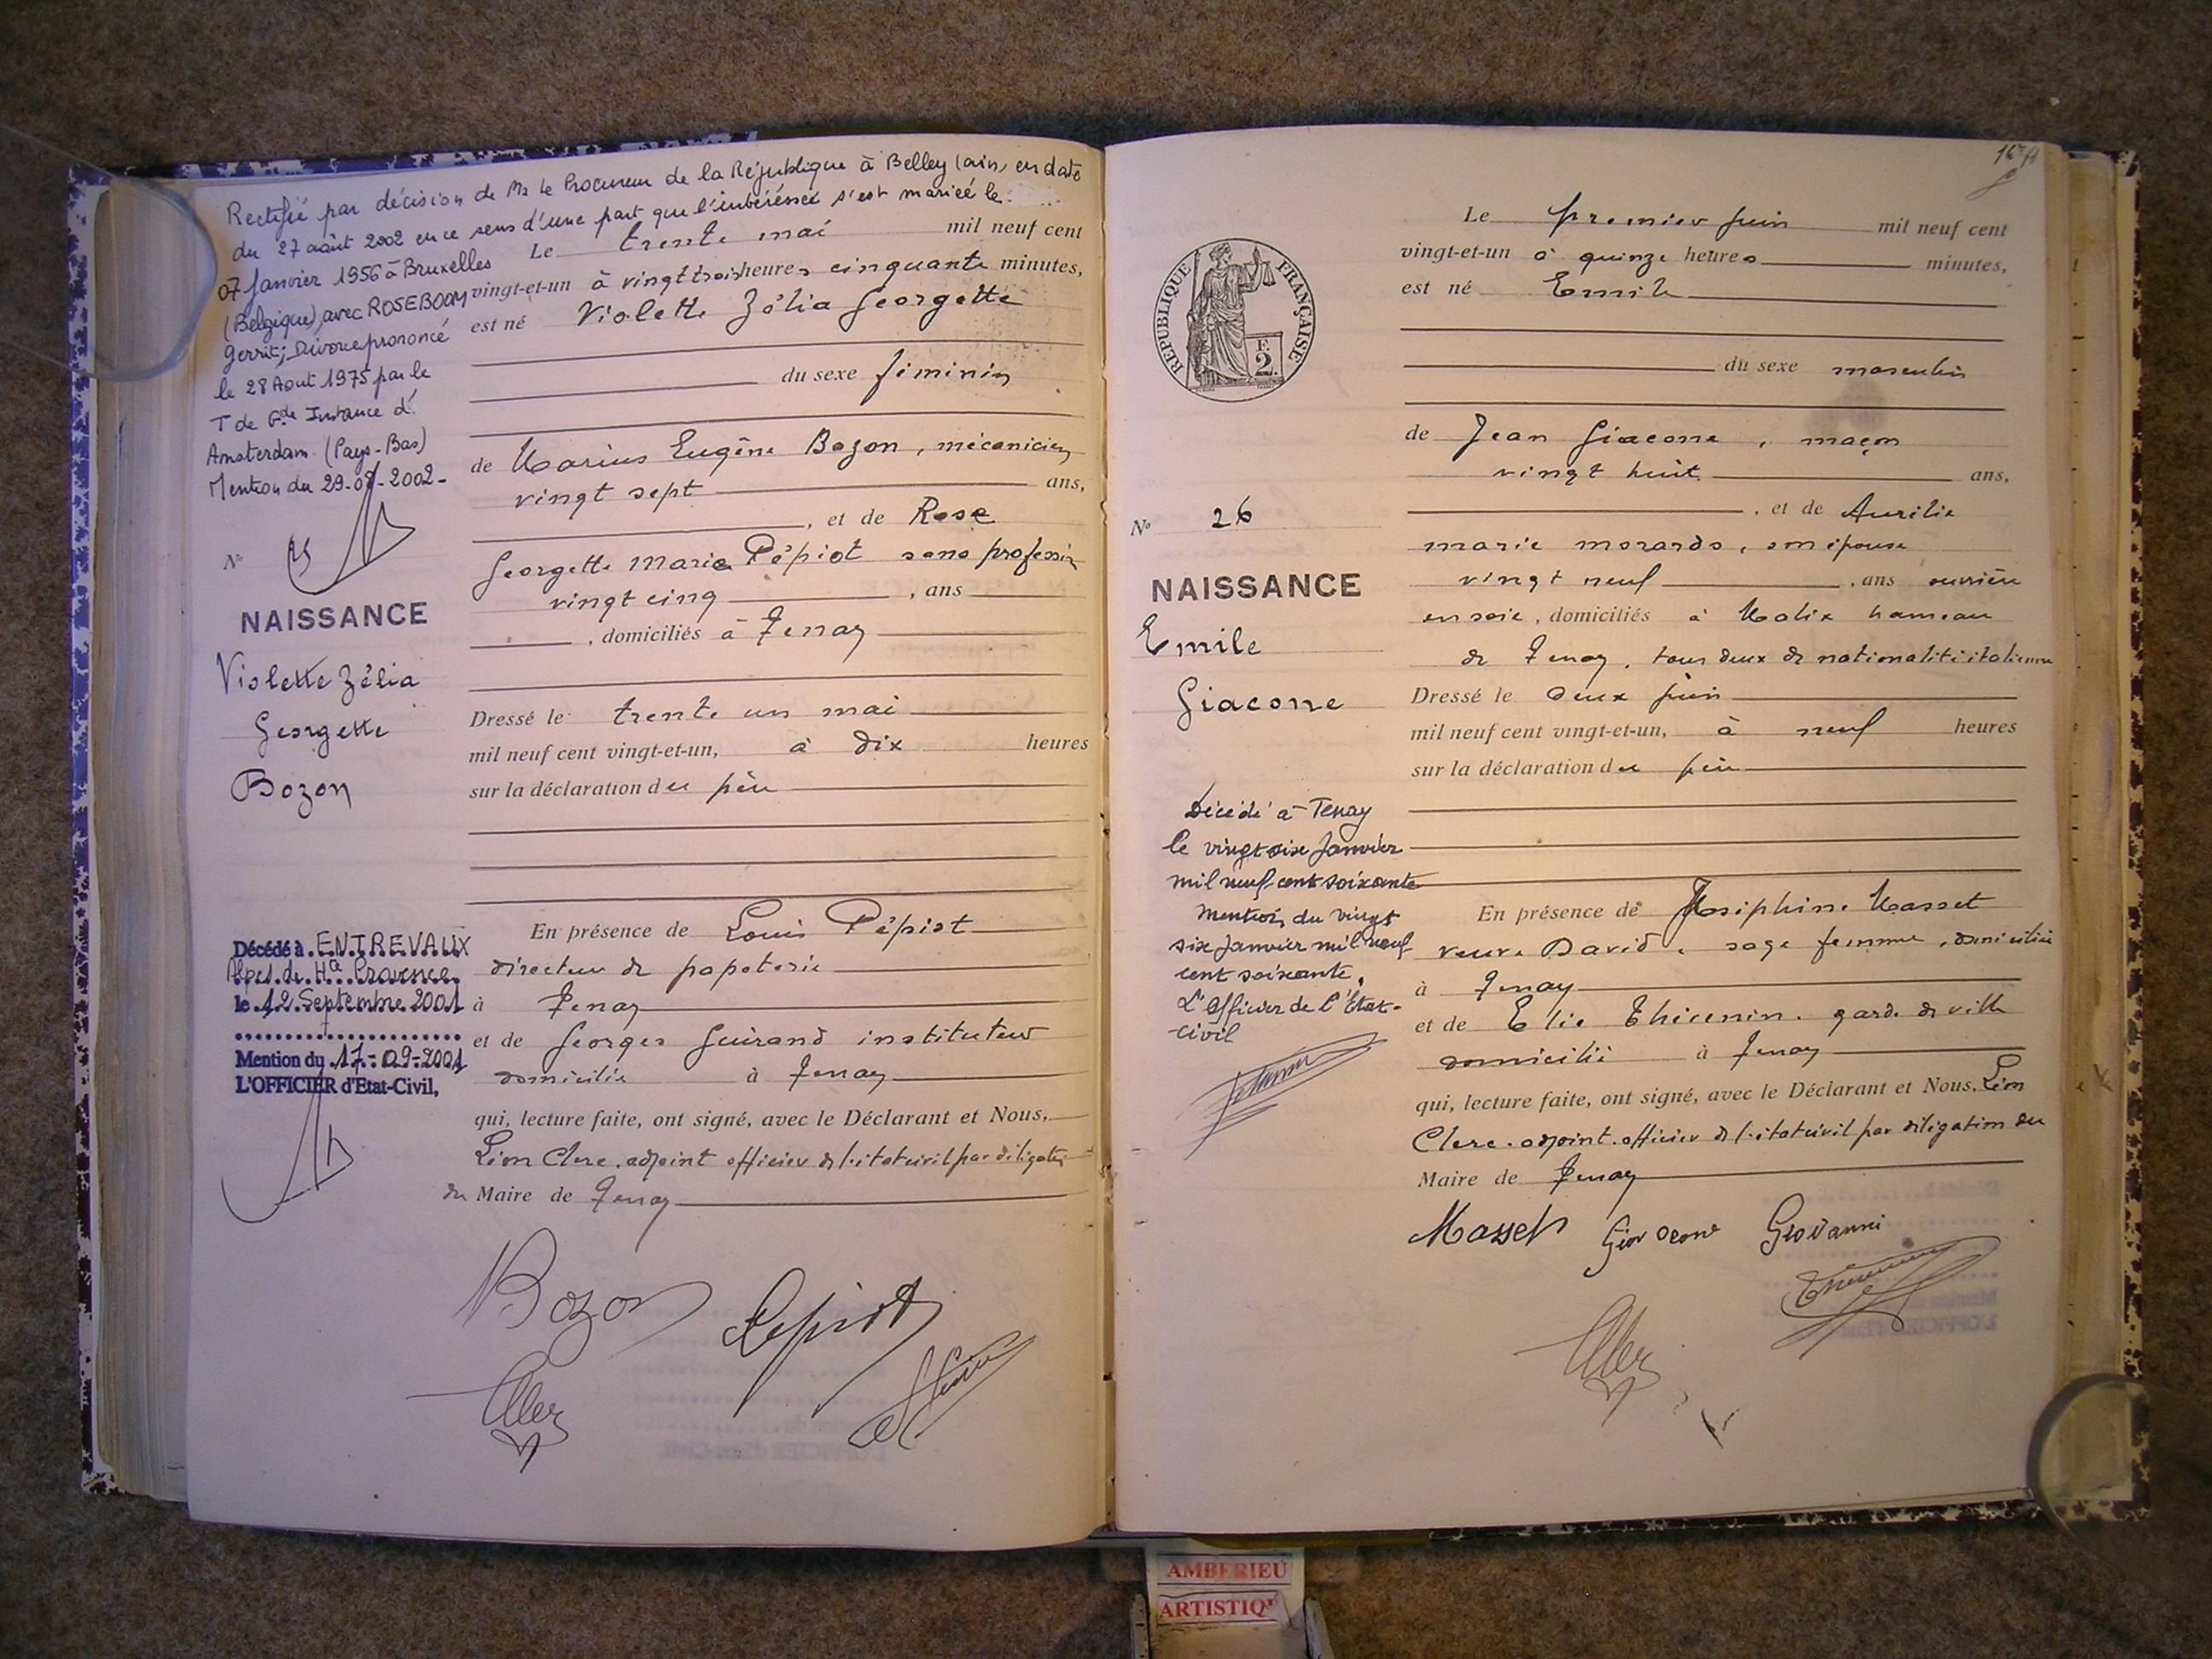 Rectifié par décision de Mr le Procureur de la République à Belley (Ain, en date
du 27 août 2002 en ce sens d'une part que l'intéréssée s'est mariée le
07 Janvier 1956 à Bruxelles
(Belgique), avec ROSEBOOM
Gerrit; Divorce prononcé
le 28 Aout 1975 par le
T de Gde Instance d'
Amsterdam (Pays-Bas)
Mention du 29-08-2002-
No 25
NAISSANCE
Violette Zélia
Georgette
Bozon
Décédé à ENTREVAUX
Alpes de Hte Provence
le 12 Septembre 2001
Mention du 17-09-2001
L'OFFICIER d'Etat-Civil,
Le trente mai mil neuf cent
vingt-et-un à vingt trois heures cinquante minutes,
est né Violette Zélia Georgette
du sexe féminin
de Marius Eugène Bozon, mécanicien
vingt sept ans,
, et de Rose
Georgette Marie Pépiot sans profession
vingt cinq , ans
, domiciliés à Tenay
Dressé le trente un mai
mil neuf cent vingt-et-un, à dix heures
sur la déclaration du père
En présence de Louis Pépiot
directeur de papeterie
à Tenay
et de Georges Guirand instituteur
domicilié à Tenay
qui, lecture faite, ont signé, avec le Déclarant et Nous,
Léon Clerc, adjoint officier de l'état civil par délégation
du Maire de Tenay
Bozon Pépiot
16e ft
REPUBLIQUE FRANÇAISE
F.
2
No 26
NAISSANCE
Emile
Giacone
Décédé à Tenay
le vingt six Janvier
mil neuf cent soixante
Mention du vingt
six Janvier mil neuf
cent soixante.
L'Officier de l'Etat-
civil
Le premier juin mil neuf cent
vingt-et-un à quinze heures minutes,
est né Emile
du sexe masculin
de Jean Giacone, maçon
vingt huit ans,
, et de Aurélie
marie morando, son épouse
vingt neuf , ans ouvrière
en soie, domiciliés à Malix hameau
de Tenay, tous deux de nationalité italienne
Dressé le deux juin
mil neuf cent vingt-et-un, à neuf heures
sur la déclaration du père
En présence de Joséphine Masset
veuve David, sage femme, domiciliée
à Tenay
et de Elie Thievenin, garde de ville
domicilié à Tenay
qui, lecture faite, ont signé, avec le Déclarant et Nous, Léon
Clerc, adjoint officier de l'état civil par délégation du
Maire de Tenay
Masset Giovanni
AMBERIEU
ARTISTIQ